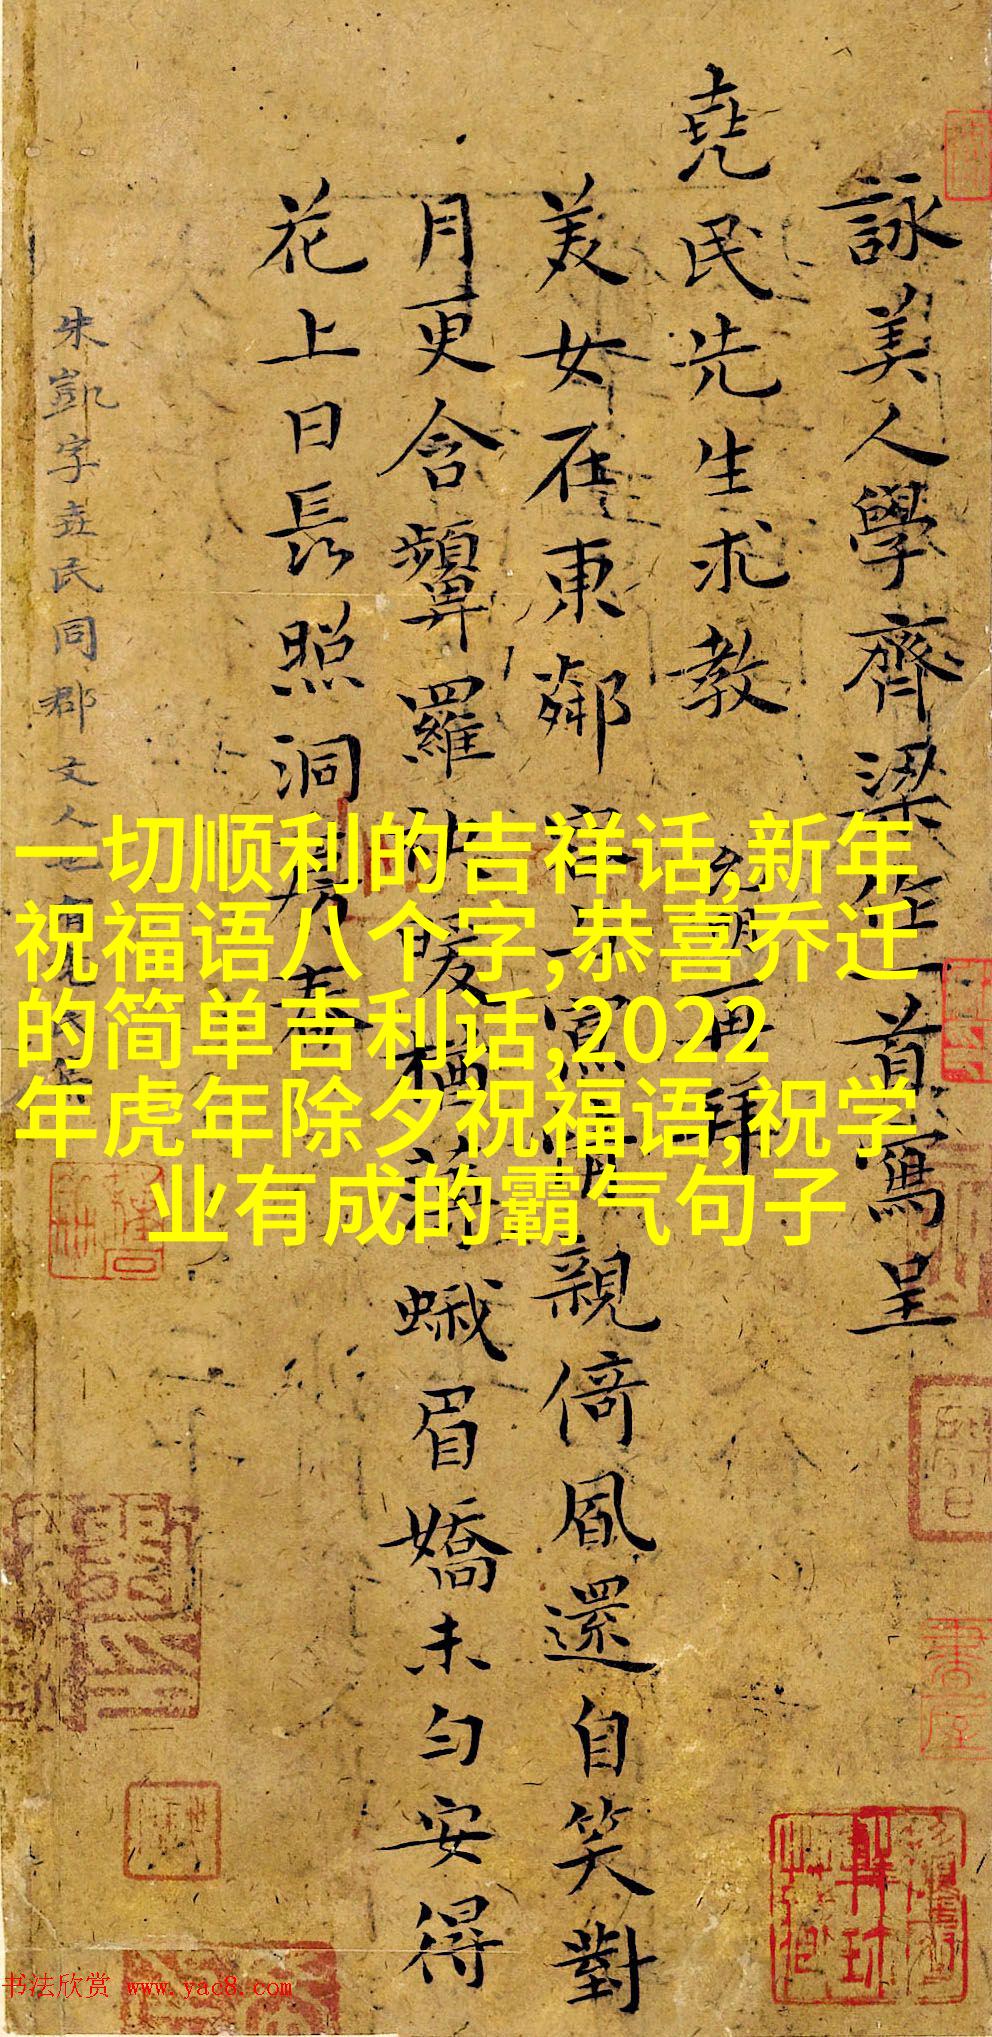 詠美人學齊梁
一首寫呈
堯民先生求教
再拜
美女在東鄰
寫
親倚風還自笑對
月更含顰羅
暖
蛾眉嬌未勻安得
花上日長照洞房春
朱凱字堯民同郡文人
一切顺利的吉祥话,新年
祝福语八个字,恭喜乔迁
的简单吉利话,2022
年虎年除夕祝福语,祝学
业有成的霸气句子
书法欣赏 www.yac8.com